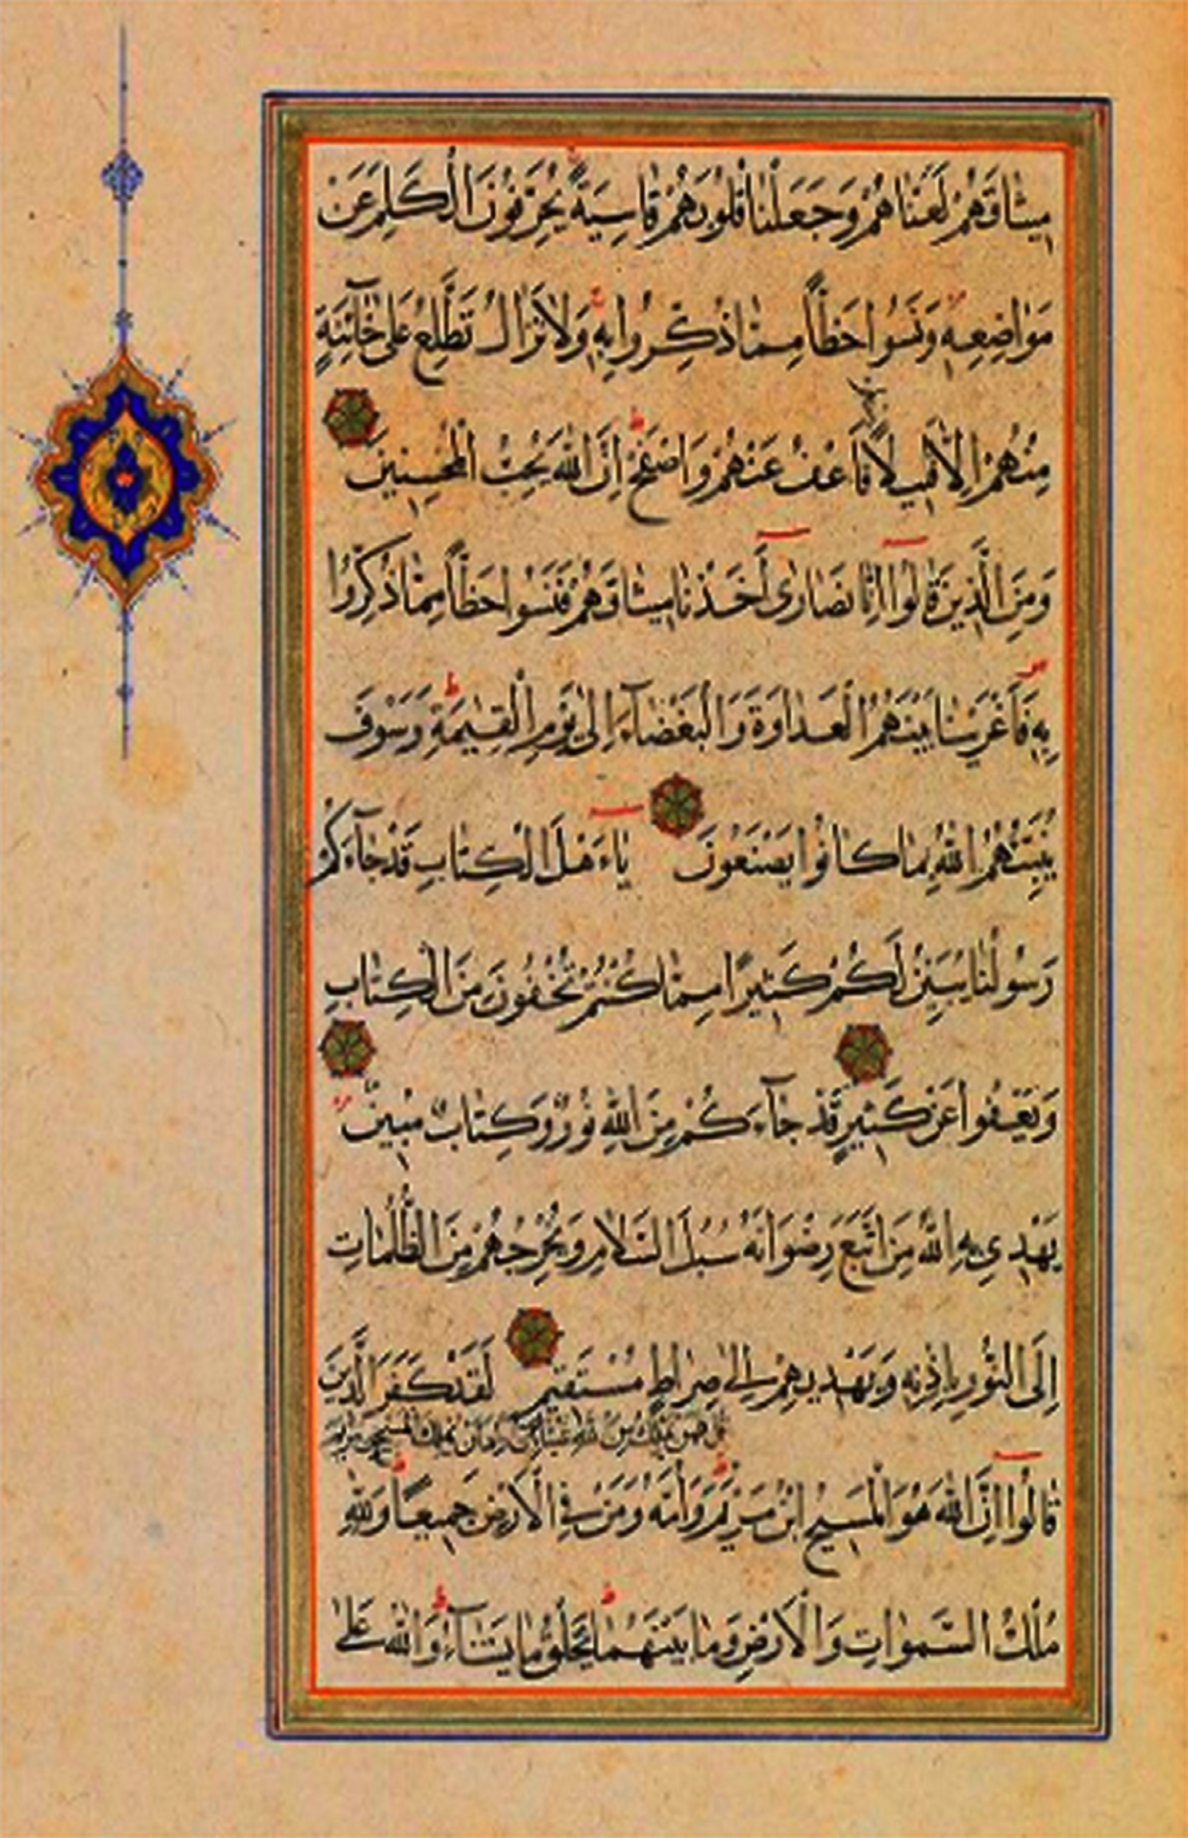 ميثاقهم لعناهم وجعلنا قلوبهم قاسية يحرفون الكلم عن
مواضعه ونسوا حظا مما ذكروا به ولا تزال تطلع على خآئنة
منهم الا قليلا فاعف عنهم واصفح ان الله يحب المحسنين
ومن الذين قالوا انا نصارى اخذنا ميثاقهم فنسوا حظا مما ذكروا
به فاغرينا بينهم العداوة والبغضآء الى يوم القيمة وسوف
ينبئهم الله بما كانوا يصنعون ياءهل الكتاب قد جآءكم
رسولنا يبين لكم كثيرا مما كنتم تخفون من الكتاب
ويعفوا عن كثير قد جآءكم من الله نور وكتاب مبين
يهدي به الله من اتبع رضوانه سبل السلام ويخرجهم من الظلمات
الى النور باذنه ويهديهم الى صراط مستقيم لقد كفر الذين
قل فمن يملك من الله شيئا ان اراد ان يهلك المسيح بن مريم
قالوا ان الله هو المسيح ابن مريم وامه ومن في الارض جميعا ولله
ملك السموات والارض وما بينهما يخلق ما يشآء والله على